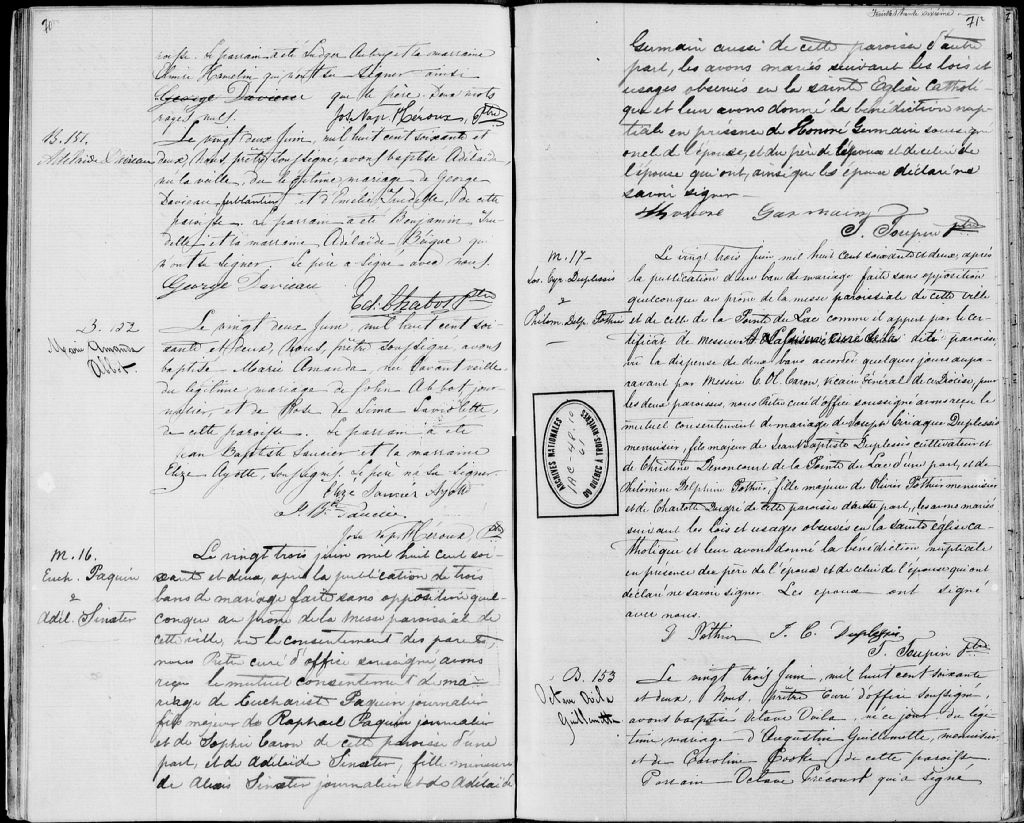 70
roisse. Le parrain a été Ludger et la marraine
Hamelin qui n'ont su signer ainsi
George Davieau que le père. Deux mots
rayés nuls. Jos. Nap. Héroux, Ptre
B. 151.
Adélaïde Davieau
Le vingt deux Juin, mil huit cent soixante et
deux, Nous, prêtre soussigné, avons baptisé Adélaïde,
née la veille, du légitime mariage de George
Davieau, ferblantier, et d'Emélie Trudelle, de cette
paroisse. Le parrain a été Benjamin Tru-
delle, et la marraine Adélaïde Bèque qui
n'ont su signer. Le père a signé avec nous.
George Davieau
Ed. Chabot Ptre
B. 152
Marie Amanda
Abbot
Le vingt deux Juin, mil huit cent soi-
xante et deux, Nous, prêtre soussigné, avons
baptisé Marie Amanda, née l'avant veille,
du légitime mariage de John Abbot jour-
nalier, et de Rose de Lima Laviolette,
de cette paroisse. Le parrain a été
Jean Baptiste Saucier et la marraine
Elize Ayotte, soussignés. Le père n'a su signer.
Elize Ayott
J. Bte Saucier
Jos. Nap. Héroux, Ptre
M. 16.
Euch. Paquin
&
Adél. Sinater
Le vingt trois juin mil huit cent soi-
xante et deux, après la publication de trois
bans de mariage faite sans opposition quel-
conque au prône de la messe paroissiale de
cette ville, vu le consentement des parents,
nous Prêtre curé d'office soussigné avons
reçu le mutuel consentement de ma-
riage de Eucharist Paquin journalier
fils majeur de Raphael Paquin journalier
et de Sophie Caron de cette paroisse d'une
part, et de Adélaïde Sinater, fille mineure
de Alexis Sinater journalier et de Adélaïde
Feuillet trente sixième
71
Germain aussi de cette paroisse d'autre
part, les avons mariés suivant les lois et
usages observés en la sainte Eglise Catholi-
que et leur avons donné la bénédiction nup-
tiale en présence de Honoré Germain soussigné
oncle de l'épouse, et du père de l'époux et de celui de
l'épouse qui ont, ainsi que les époux déclaré ne
savoir signer
Honoré Germain
T. Toupin Ptre
M. 17
Jos. Cyr. Duplessis
&
Philom. Delp. Pothier
Le vingt trois juin mil huit cent soixante et deux, après
la publication d'un ban de mariage faite sans opposition
quelconque au prône de la messe paroissiale de cette ville
et de celle de la Pointe du Lac comme il appert par le cer-
tificat de Messire curé de la dite paroisse,
vu la dispense de deux bans accordée quelques jours aupa-
ravant par Messire C. Ol. Caron, Vicaire Général de ce Diocèse, pour
les deux paroisses, nous Prêtre curé d'office soussigné avons reçu le
mutuel consentement de mariage de Joseph Ciriaque Duplessis
menuisier, fils majeur de Jean Baptiste Duplessis cultivateur et
de Christine Denoncourt de la Pointe du Lac d'une part, et de
Philomène Delphine Pothier, fille majeure de Olivier Pothier menuisier
et de Charlotte Dugré de cette paroisse d'autre part, les avons mariés
suivant les lois et usages observés en la sainte église ca-
tholique et leur avons donné la bénédiction nuptiale
en présence du père de l'époux et de celui de l'épouse qui ont
déclaré ne savoir signer. Les époux ont signé
avec nous.
D Pothier J. C. Duplessis
T. Toupin Ptre
ARCHIVES NATIONALES
DU QUEBEC A TROIS-RIVIERES
B. 153
Octave Doila
Guillemette
Le vingt trois Juin, mil huit cent soixante
et deux, Nous, prêtre Curé d'office soussigné,
avons baptisé Octave Doila, né ce jour, du légi-
time mariage d'Augustin Guillemette, menuisier,
et de Caroline Cooke, de cette paroisse.
Parrain Octave Précourt qui a signé